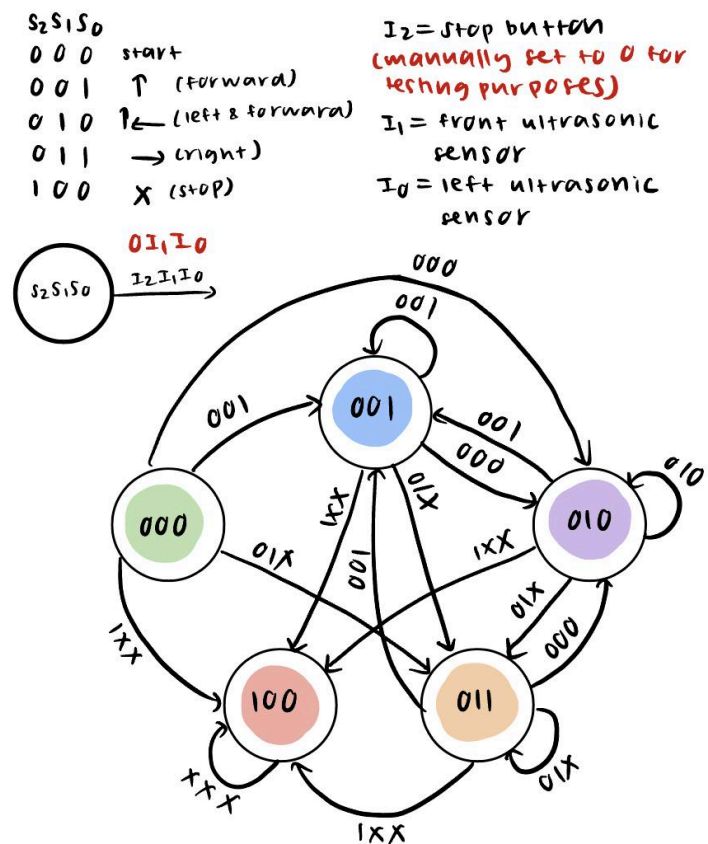 S2S1S0
0 0 0 start
0 0 1 ↑ (forward)
0 1 0 ↑← (left & forward)
0 1 1 → (right)
1 0 0 X (stop)
I2 = stop button
(manually set to 0 for
testing purposes)
I1 = front ultrasonic
sensor
I0 = left ultrasonic
sensor
0I1I0
S2S1S0
I2I1I0
000
001
001
001
001
000
01X
1XX
000
010
010
01X
1XX
001
1XX
01X
000
1XX
100
011
XXX
01X
1XX